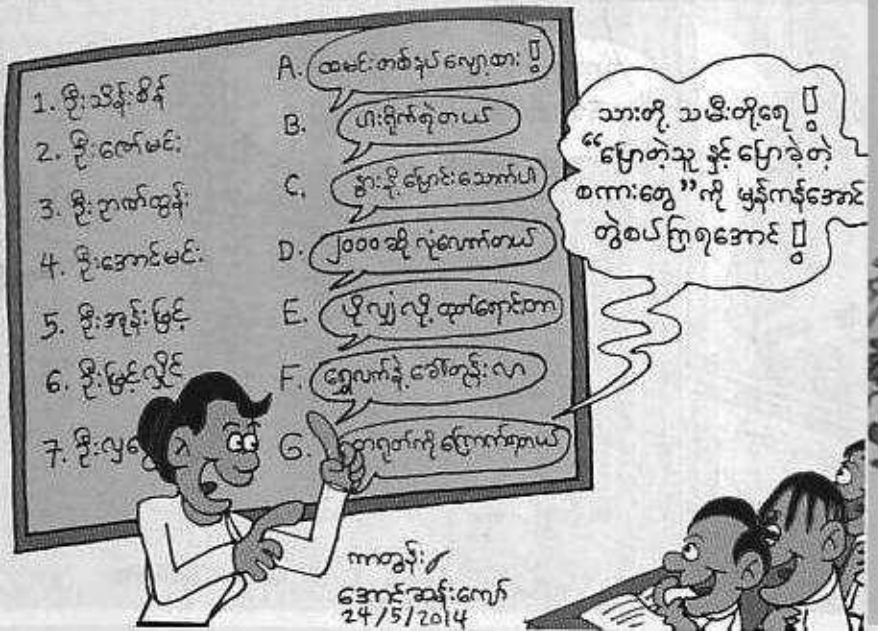 1. ဦးသိန်းစိန်
2. ဦးဇော်မင်း
3. ဦးဉာဏ်ထွန်း
4. ဦးအောင်မင်း
5. ဦးအုန်းမြင့်
6. ဦးမြင့်လှိုင်
7. ဦးလှ
A. ထမင်းတစ်နပ်လျှော့စား။
B. ပါးရိုက်ရဲတယ်
C. နွားနို့ပြောင်းသောက်ပါ
D. ၂၀၀၀ ဆို လုံလောက်တယ်
E. ပိုလျှံလို့ ထုတ်ရောင်းတာ
F. ရွှေလက်နဲ့ ခေါ်တုန်းလာ
G. တရုတ်ကို ကြောက်ရတယ်
သားတို့ သမီးတို့ရေ။
“ပြောတဲ့သူ နှင့် ပြောခဲ့တဲ့
စကားတွေ” ကို မှန်ကန်အောင်
တွဲစပ်ကြရအောင်။
ကာတွန်း
အောင်ဆန်းကျော်
24/5/2014